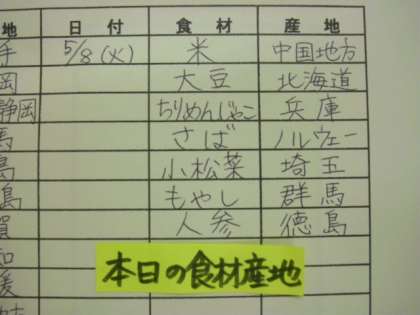 地 日付 食材 産地
手 5/8(火) 米 中国地方
岡 大豆 北海道
静岡 ちりめんじゃこ 兵庫
馬 さば ノルウェー
島 小松菜 埼玉
島 もやし 群馬
賀 人参 徳島
知
本日の食材産地
媛